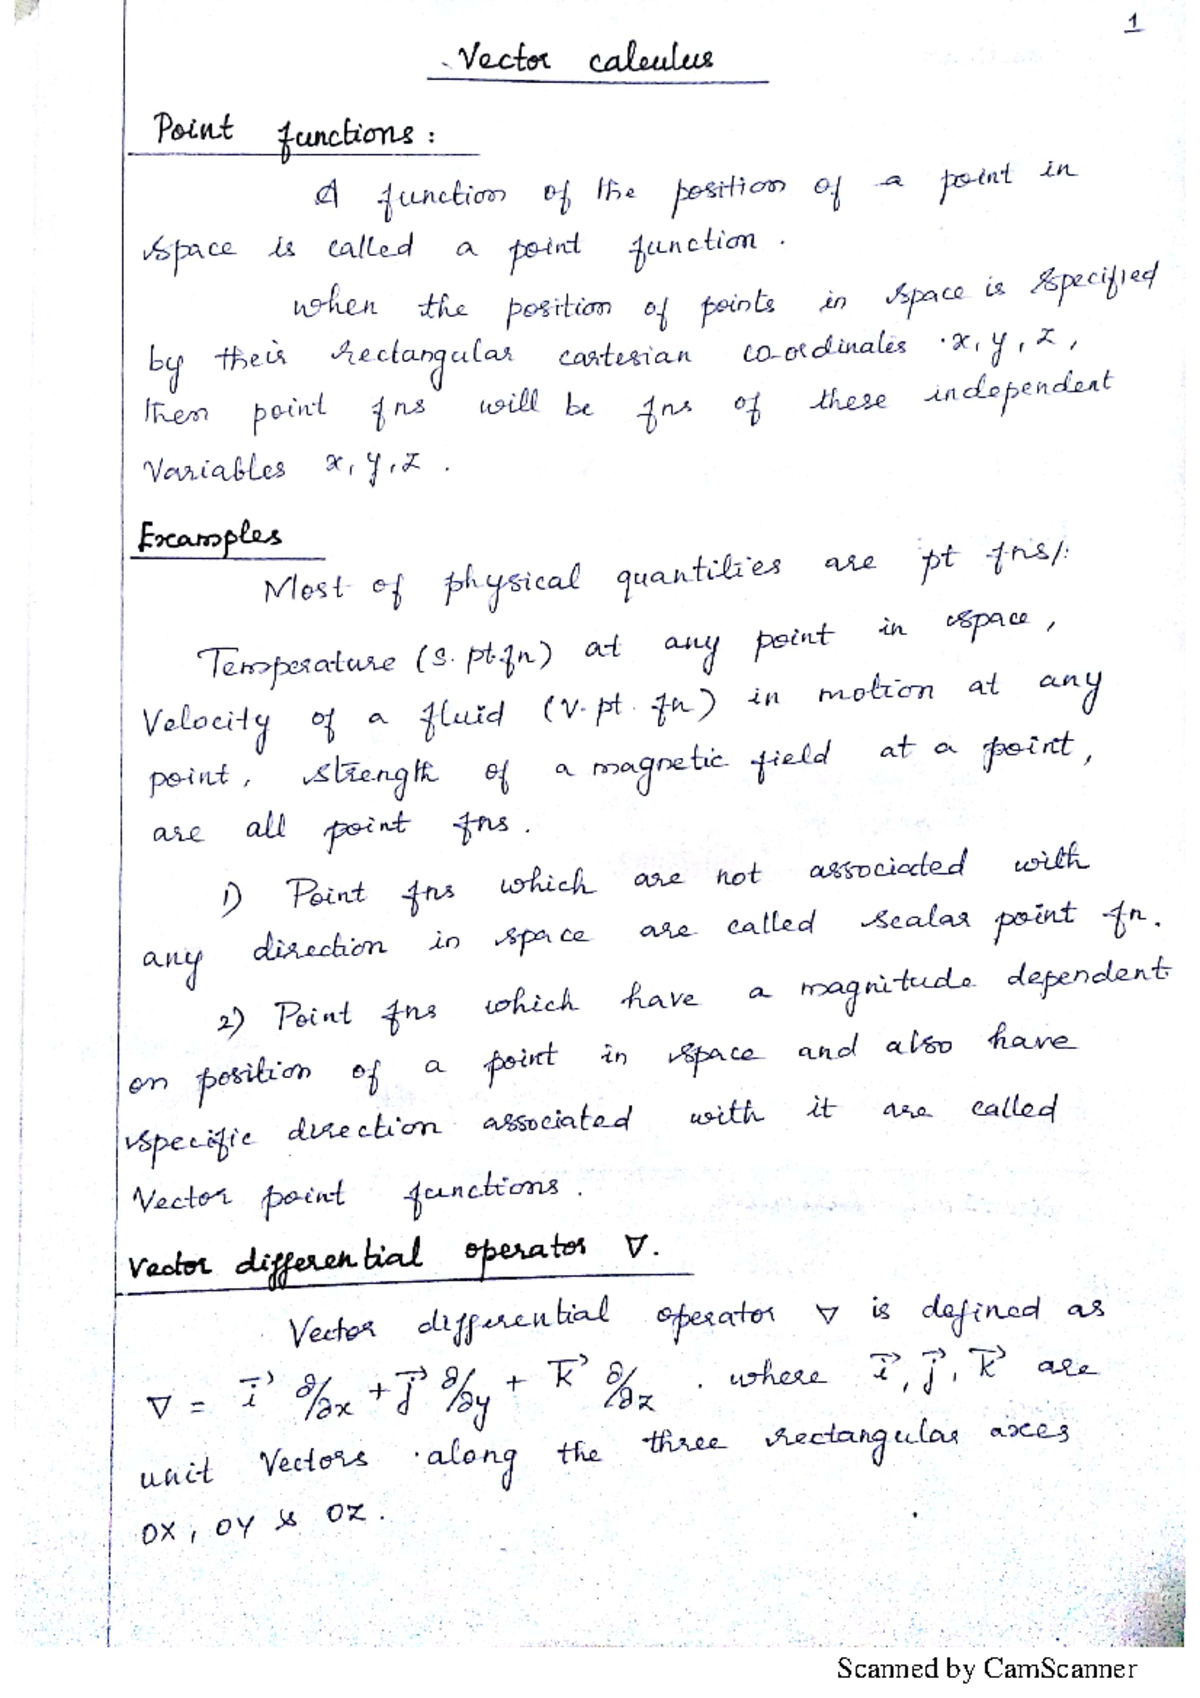 1
Vector calculus
Point functions :
A function of the position of a point in
space is called a point function .
when the position of points in space is specified
by their rectangular cartesian co-ordinates x, y, z,
then point fns will be fns of these independent
Variables x, y, z .
Examples
Most of physical quantities are pt fns/:
Temperature (S. pt.fn) at any point in space,
Velocity of a fluid (V. pt. fn) in motion at any
point, strength of a magnetic field at a point,
are all point fns.
1) Point fns which are not associated with
any direction in space are called scalar point fn.
2) Point fns which have a magnitude dependent
on position of a point in space and also have
specific direction associated with it are called
Vector point functions.
Vector differential operator ∇.
Vector differential operator ∇ is defined as
∇ = i⃗ ∂/∂x + j⃗ ∂/∂y + k⃗ ∂/∂z . where i⃗, j⃗, k⃗ are
unit Vectors along the three rectangular axes
OX, OY & OZ.
Scanned by CamScanner